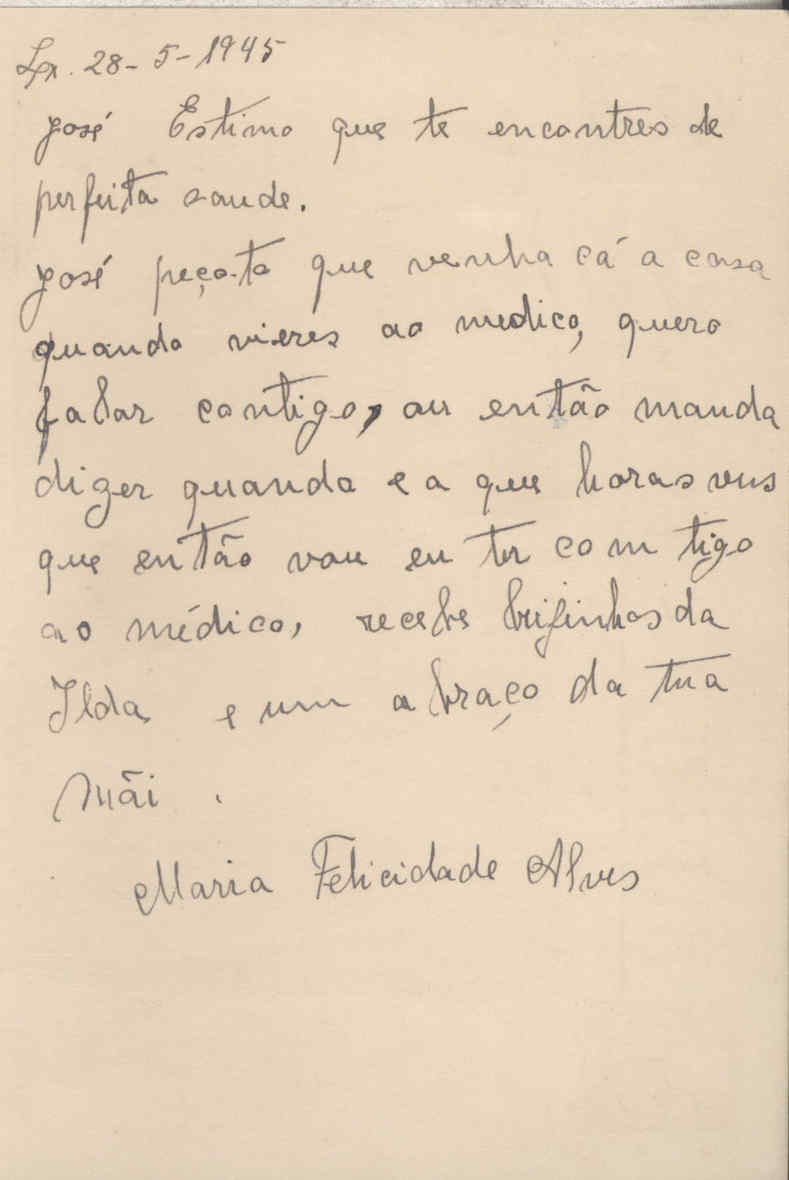 Lx. 28-5-1945
José Estimo que te encontres de
perfeita saude.
José peço-te que venha cá a casa
quando vieres ao medico, quero
falar contigo, ou então manda
dizer quando e a que horas vens
que então vou eu ter com tigo
ao médico, recebe beijinhos da
Ilda e um abraço da tua
Mãi.
Maria Felicidade Alves